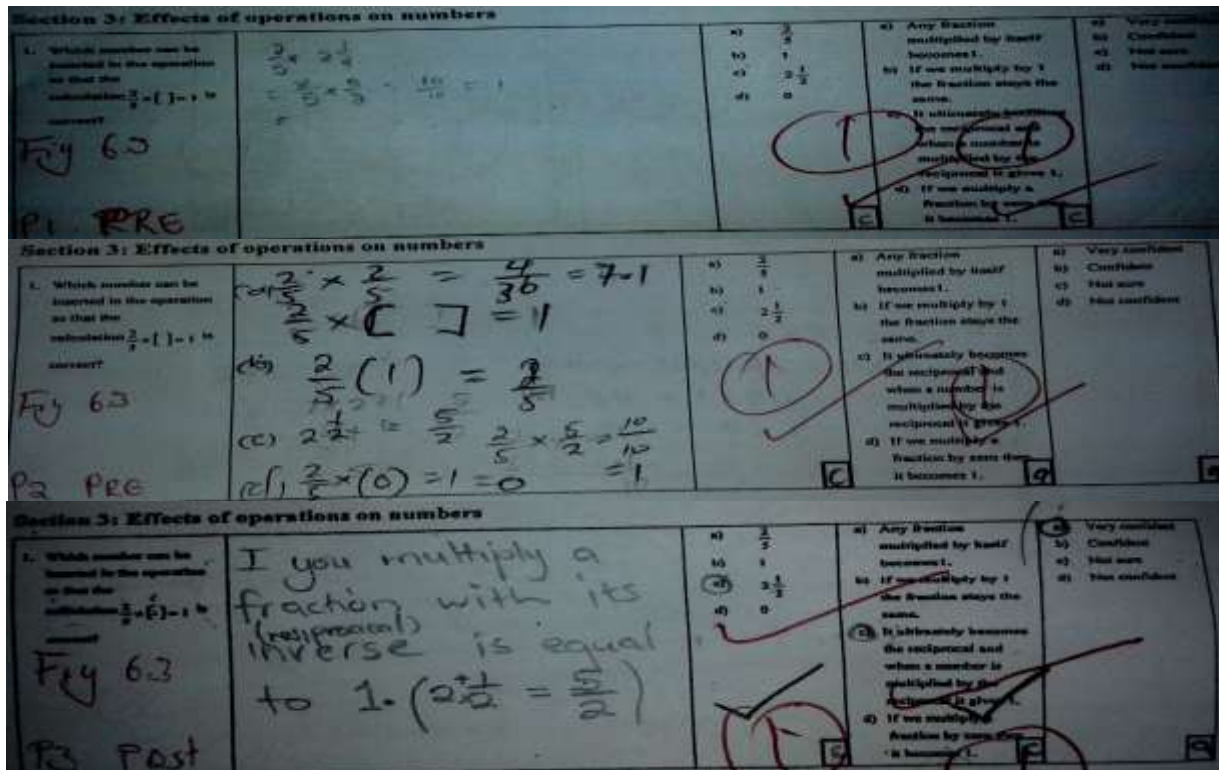 Section 3: Effects of operations on numbers
1. Which number can be
inserted in the operation
so that the
calculation 2/5 × [ ] = 1 is
correct?
Fig 6.3
P1 PRE
2/5 × 2 1/2
= 2/5 × 5/2 = 10/10 = 1
=
a) 2/5
b) 1
c) 2 1/2
d) 0
1
C
a) Any fraction
multiplied by itself
becomes 1.
b) If we multiply by 1
the fraction stays the
same.
c) It ultimately becomes
the reciprocal and
when a number is
multiplied by the
reciprocal it gives 1.
d) If we multiply a
fraction by zero then
it becomes 1.
1
C
a) Very confident
b) Confident
c) Not sure
d) Not confident
Section 3: Effects of operations on numbers
1. Which number can be
inserted in the operation
so that the
calculation 2/5 × [ ] = 1 is
correct?
Fig 6.3
P2 PRE
(a) 2/5 × 2/5 = 4/36 = 7.1
2/5 × [ ] = 1
(b) 2/5 (1) = 2/5
(c) 2 1/2 = 5/2 2/5 × 5/2 = 10/10
= 1
(d) 2/5 × (0) = 1 = 0
a) 2/5
b) 1
c) 2 1/2
d) 0
1
C
a) Any fraction
multiplied by itself
becomes 1.
b) If we multiply by 1
the fraction stays the
same.
c) It ultimately becomes
the reciprocal and
when a number is
multiplied by the
reciprocal it gives 1.
d) If we multiply a
fraction by zero then
it becomes 1.
1
a) Very confident
b) Confident
c) Not sure
d) Not confident
Section 3: Effects of operations on numbers
1. Which number can be
inserted in the operation
so that the
calculation 2/5 × [c] = 1 is
correct?
Fig 6.3
P3 POST
I you multiply a
fraction with its
(resiprocal)
inverse is equal
to 1. (2 + 1/2 = 5/2)
a) 2/5
b) 1
c) 2 1/2
d) 0
1
a) Any fraction
multiplied by itself
becomes 1.
b) If we multiply by 1
the fraction stays the
same.
c) It ultimately becomes
the reciprocal and
when a number is
multiplied by the
reciprocal it gives 1.
d) If we multiply a
fraction by zero then
it becomes 1.
a) Very confident
b) Confident
c) Not sure
d) Not confident
a